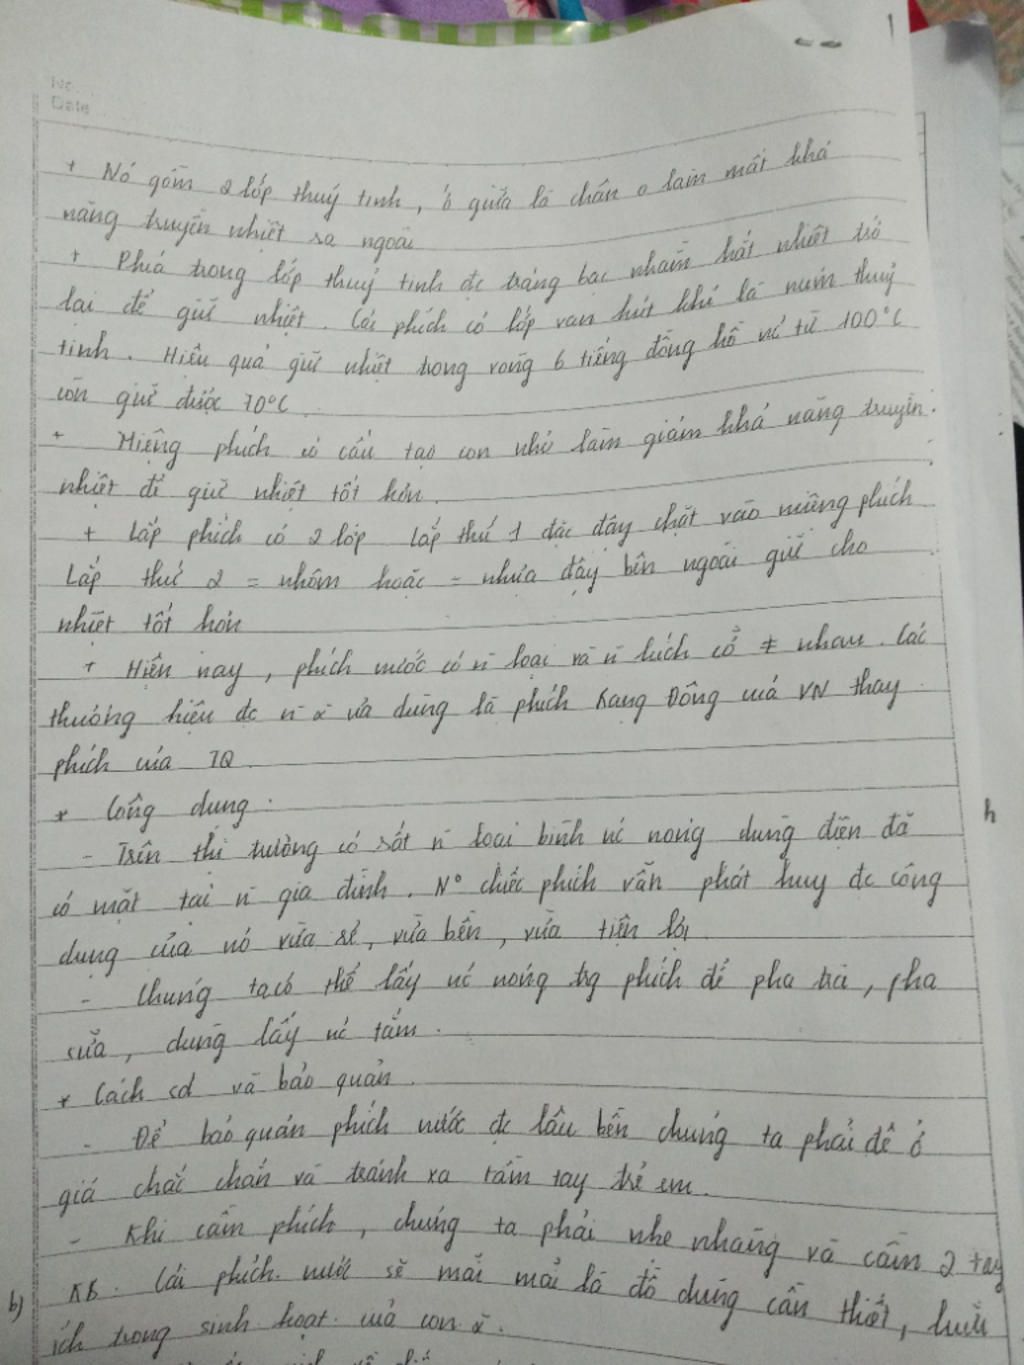 No.
Date
+ Nó gồm 2 lớp thuỷ tinh, ở giữa là chân o làm mất khả
năng truyền nhiệt ra ngoài
+ Phía trong lớp thuỷ tinh đc tráng bạc nhằm hắt nhiệt trở
lại để giữ nhiệt. Cái phích có lớp van hút khí là núm thuỷ
tinh. Hiệu quả giữ nhiệt trong vòng 6 tiếng đồng hồ nc từ 100°C
còn giữ được 70°C.
+ Miệng phích có cấu tạo con nhỏ làm giảm khả năng truyền
nhiệt để giữ nhiệt tốt hơn.
+ Lắp phích có 2 lớp lắp thứ 1 đậy chặt vào miệng phích
Lắp thứ 2 = nhôm hoặc = nhựa đậy bên ngoài giữ cho
nhiệt tốt hơn
+ Hiện nay, phích nước có n̄ loại và n̄ kích cỡ ≠ nhau. Các
thương hiệu đc n̄ và dùng là phích Rạng Đông của VN thay
phích của TQ.
* Công dụng:
- Trên thị trường có rất n̄ loại bình nc nóng dùng điện đã
có mặt tại n̄ gia đình. N° chiếc phích vẫn phát huy đc công
dụng của nó vừa rẻ, vừa bền, vừa tiện lợi
- Chúng ta có thể lấy nc nóng trg phích để pha trà, pha
sữa, dùng lấy nc tắm.
* Cách sd và bảo quản.
- Để bảo quản phích nước đc lâu bền chúng ta phải để ở
giá chắc chắn và tránh xa tầm tay trẻ em.
- Khi cầm phích, chúng ta phải nhẹ nhàng và cầm 2 tay
b) KB. Cái phích nước sẽ mãi mãi là đồ dùng cần thiết, hữu
ích trong sinh hoạt của con
h